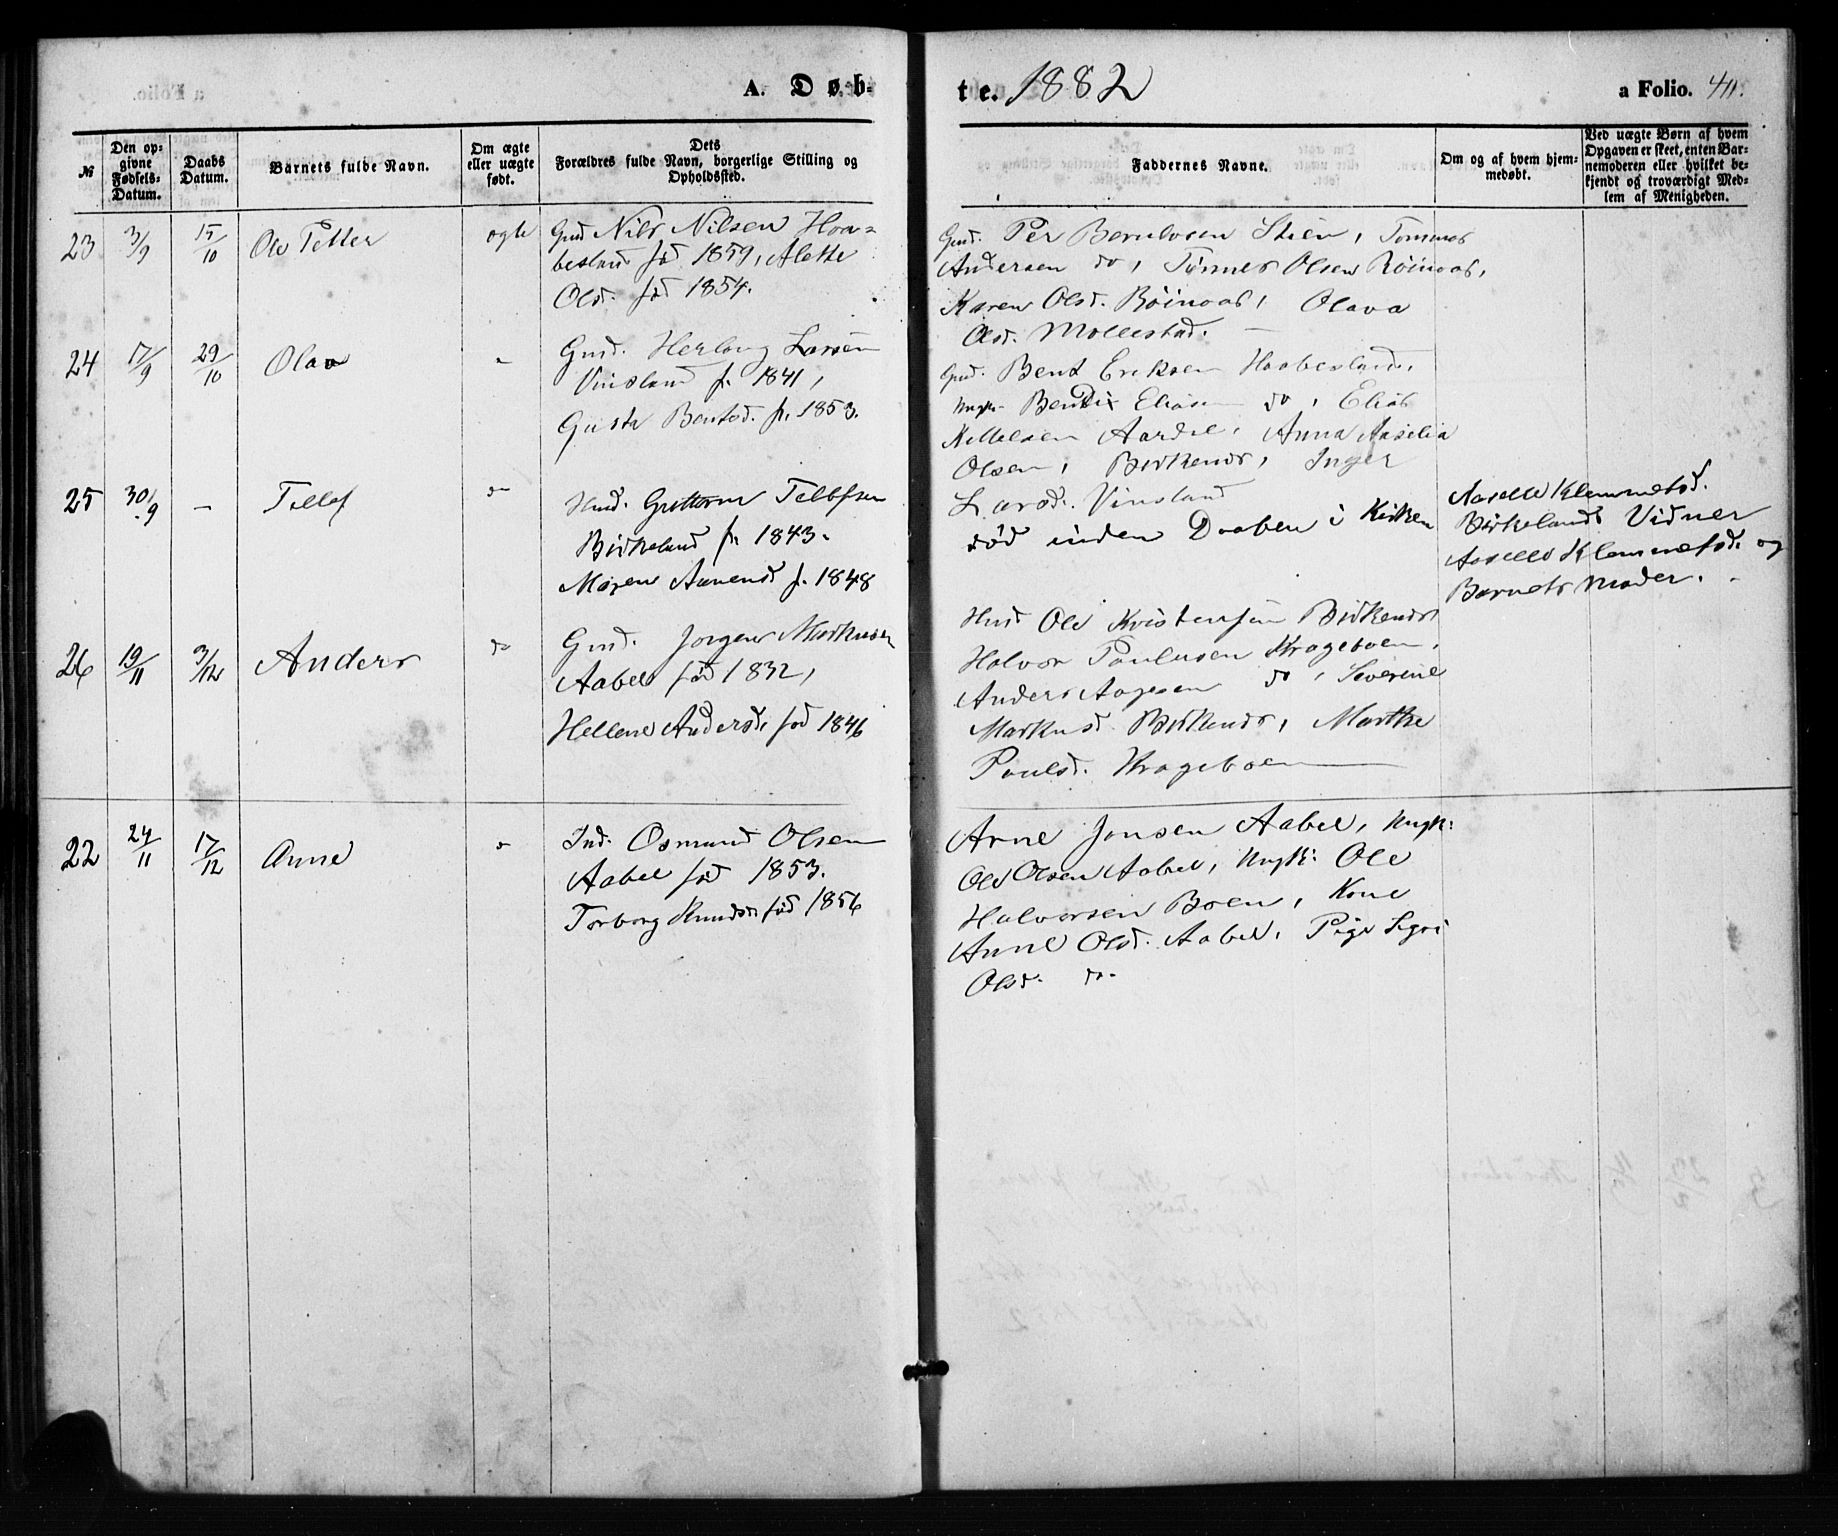 A. Døb-
te. 1882
a Folio. 40.
№
Den op-
givne
Fødsels-
Datum.
Daabs
Datum.
Barnets fulde Navn.
Om ægte
eller uægte
født.
Dets
Forældres fulde Navn, borgerlige Stilling og
Opholdssted.
Faddernes Navne.
Om og af hvem hjem-
medøbt.
Ved uægte Børn af hvem
Opgaven er skeet, enten Bar-
nemoderen eller hvilket be-
kjendt og troværdigt Med-
lem af Menigheden.
23 3/9 15/10 Ole Petter ægte
Gmd Nils Nilsen Haa-
besland fød 1859, Alette
Olsd. fød 1854.
Gmd. Per Berulvsen Skien, Tommes
Andersen do, Tønnes Olsen Røinaas,
Karen Olsd. Røinaas, Olava
Olsd. Mollestad.
24 17/9 29/10 Olav "
Gmd. Herlaug Larsen
Vinsland f. 1841,
Gusta Bentsd. f. 1853.
Gmd. Bent Eriksen Haabesland,
Ungk. Bendix Eliasen do, Elias
Kittelsen Aardal, Anna Aaselia
Olsen, Birkenes, Inger
Larsd. Vinsland
25 30/9 - Tellef do
Husd. Guttorm Tellefsen
Birkeland f. 1843.
Maren Aanensd f. 1848
død inden Daaben i Kirken
Aaselle Klemmetsd.
Birkelands Vidner
Aaselle Klemmetsd. og
Barnets Moder.
26 19/11 3/12 Anders do
Gmd. Jørgen Markusen
Aabel fød 1832,
Hellene Andersd. fød 1846
Husd Ole Kristensen Birkenes
Halvor Paulusen Krageboen,
Anders Aagesen do, Severine
Markusd Birkenes, Marthe
Paulsd. Krageboen
22 24/11 17/12 Anne "
Ind. Osmund Olsen
Aabel fød 1853.
Torborg Knudsd. fød 1856
Arne Jonsen Aabel, Ungk:
Ole Olsen Aabel, Ungk: Ole
Halvorsen Boen, Kone
Anne Olsd. Aabel, Pige Sigri
Olsd. do.